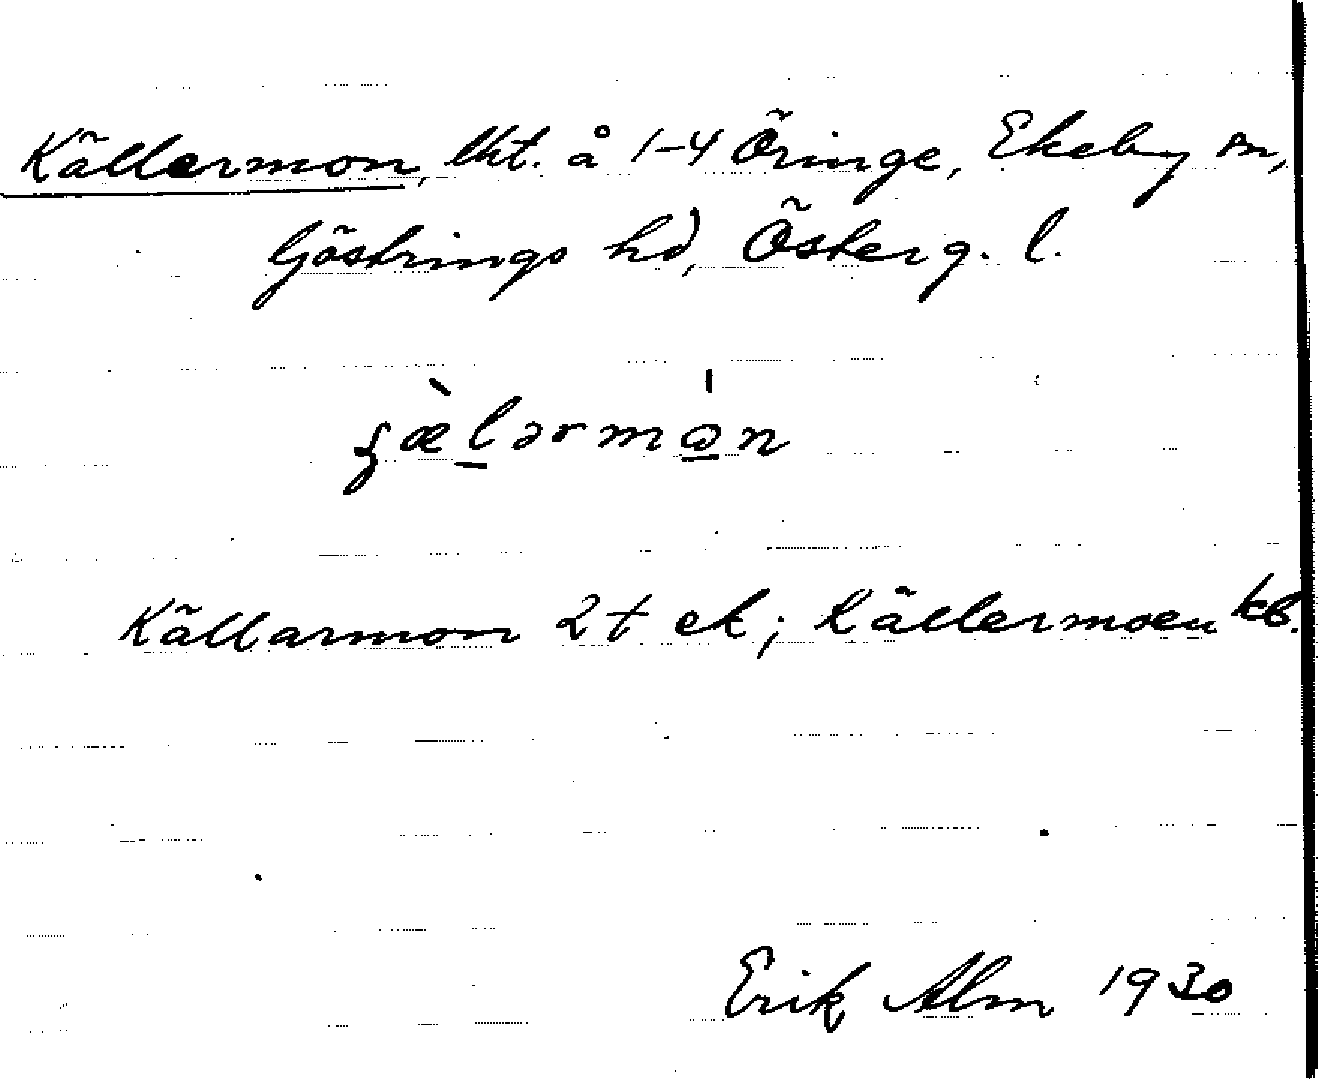 Källermon, lht. å 1-4 Öringe, Ekeby sn,
Göstrings hd, Österg. l.
Källarmon 2t ek; Källermoen kb.
Erik Alm 1930